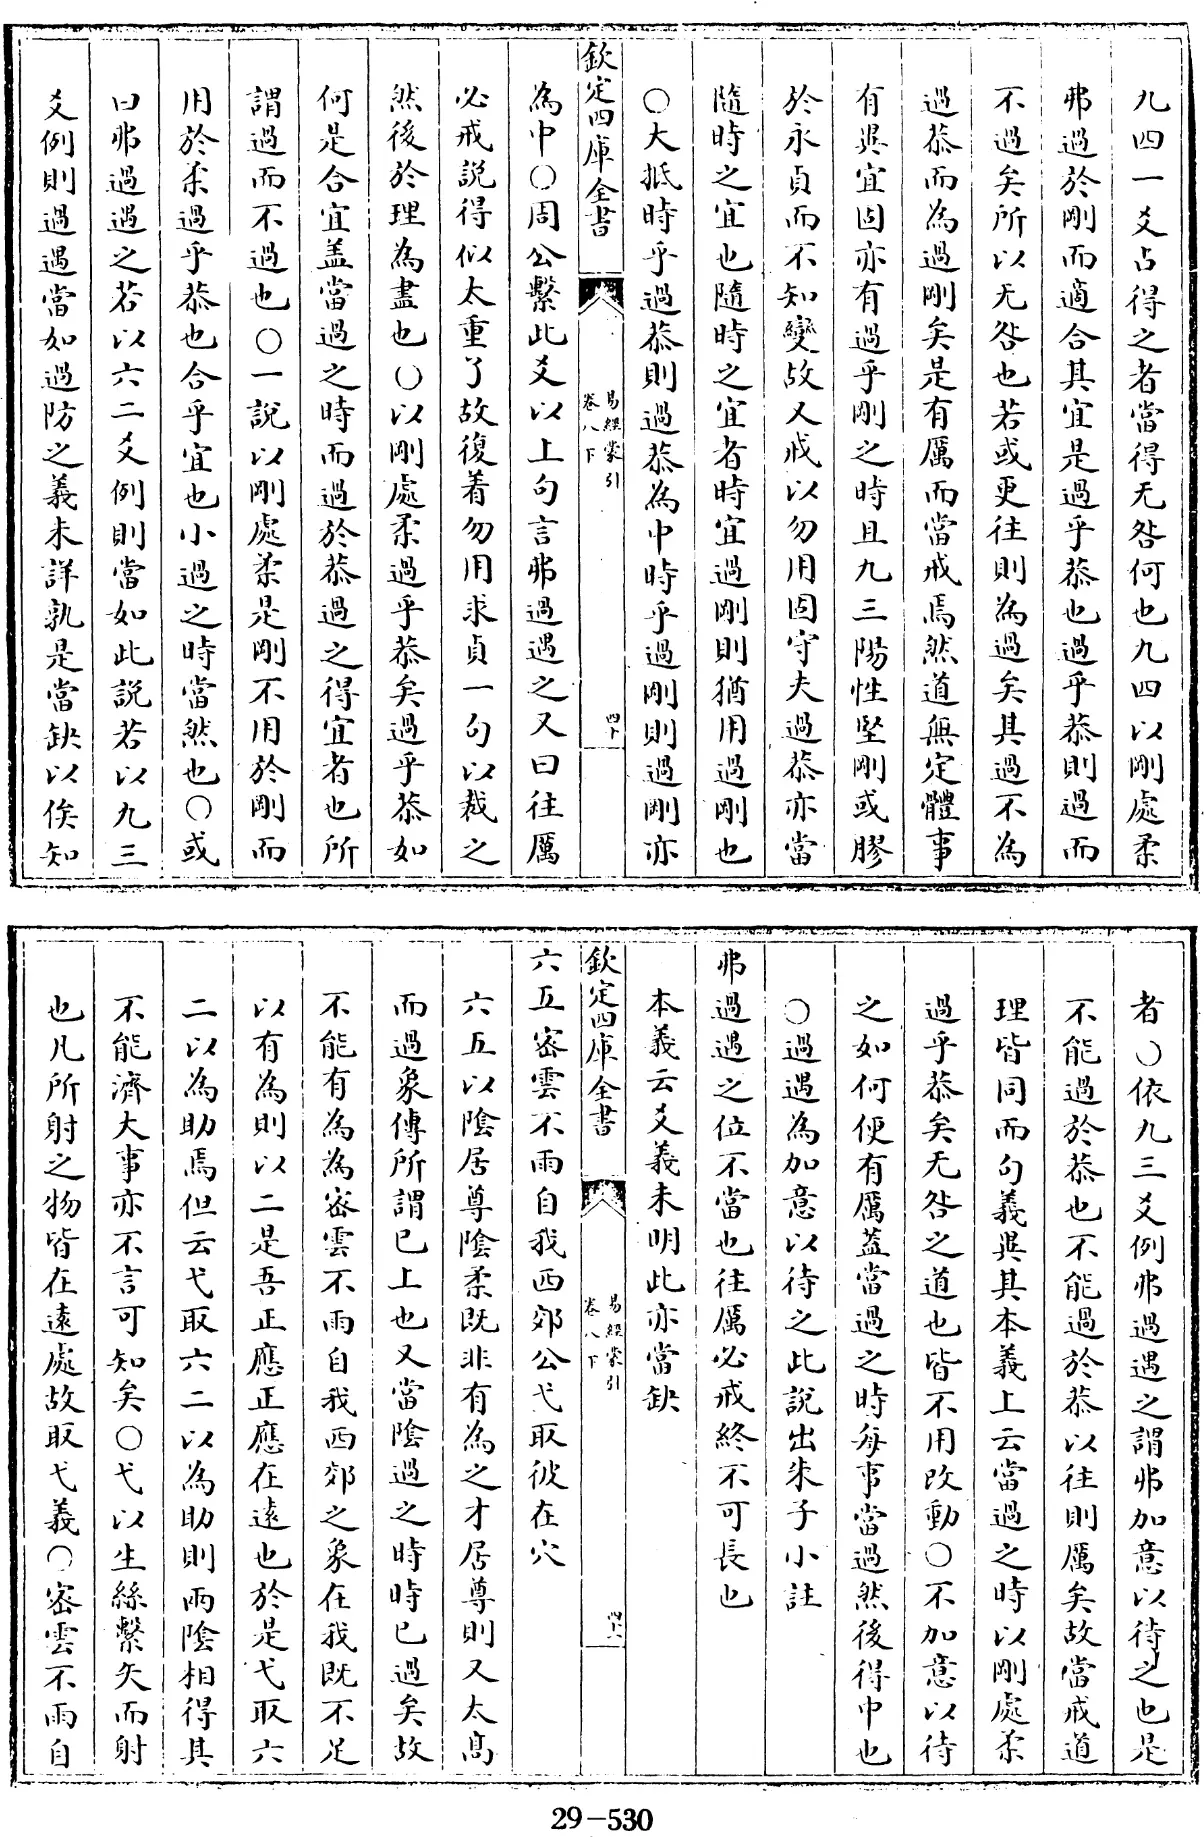 九四一爻占得之者當得无咎何也九四以剛處柔
弗過於剛而適合其宜是過乎恭也過乎恭則過而
不過矣所以无咎也若或更往則為過矣其過不為
過恭而為過剛矣是有厲而當戒焉然道無定體事
有異宜固亦有過乎剛之時且九三陽性堅剛或膠
於永貞而不知變故又戒以勿用固守夫過恭亦當
隨時之宜也隨時之宜者時宜過剛則猶用過剛也
○大抵時乎過恭則過恭為中時乎過剛則過剛亦
欽定四庫全書
易經蒙引
卷八下
為中○周公繫此爻以上句言弗過遇之又曰往厲
必戒說得似太重了故復着勿用永貞一句以裁之
然後於理為盡也○以剛處柔過乎恭矣過乎恭如
何是合宜盖當過之時而過於恭過之得宜者也所
謂過而不過也○一說以剛處柔是剛不用於剛而
用於柔過乎恭也合乎宜也小過之時當然也○或
曰弗過遇之若以六二爻例則當如此說若以九三
爻例則過遇當如過防之義未詳孰是當缺以俟知
者○依九三爻例弗過遇之謂弗加意以待之也是
不能過於恭也不能過於恭以往則厲矣故當戒道
理皆同而句義與其本義上云當過之時以剛處柔
過乎恭矣无咎之道也皆不用改動○不加意以待
之如何便有厲蓋當過之時每事當過然後得中也
○過遇為加意以待之此說出朱子小註
弗過遇之位不當也往厲必戒終不可長也
本義云爻義未明此亦當缺
欽定四庫全書
易經蒙引
卷八下
六五密雲不雨自我西郊公弋取彼在穴
六五以陰居尊陰柔既非有為之才居尊則又太髙
而過象傳所謂已上也又當陰過之時時已過矣故
不能有為為密雲不雨自我西郊之象在我既不足
以有為則以二是吾正應正應在遠也於是弋取六
二以為助焉但云弋取六二以為助則兩陰相得其
不能濟大事亦不言可知矣○弋以生絲繫矢而射
也凡所射之物皆在遠處故取弋義○密雲不雨自
29-530